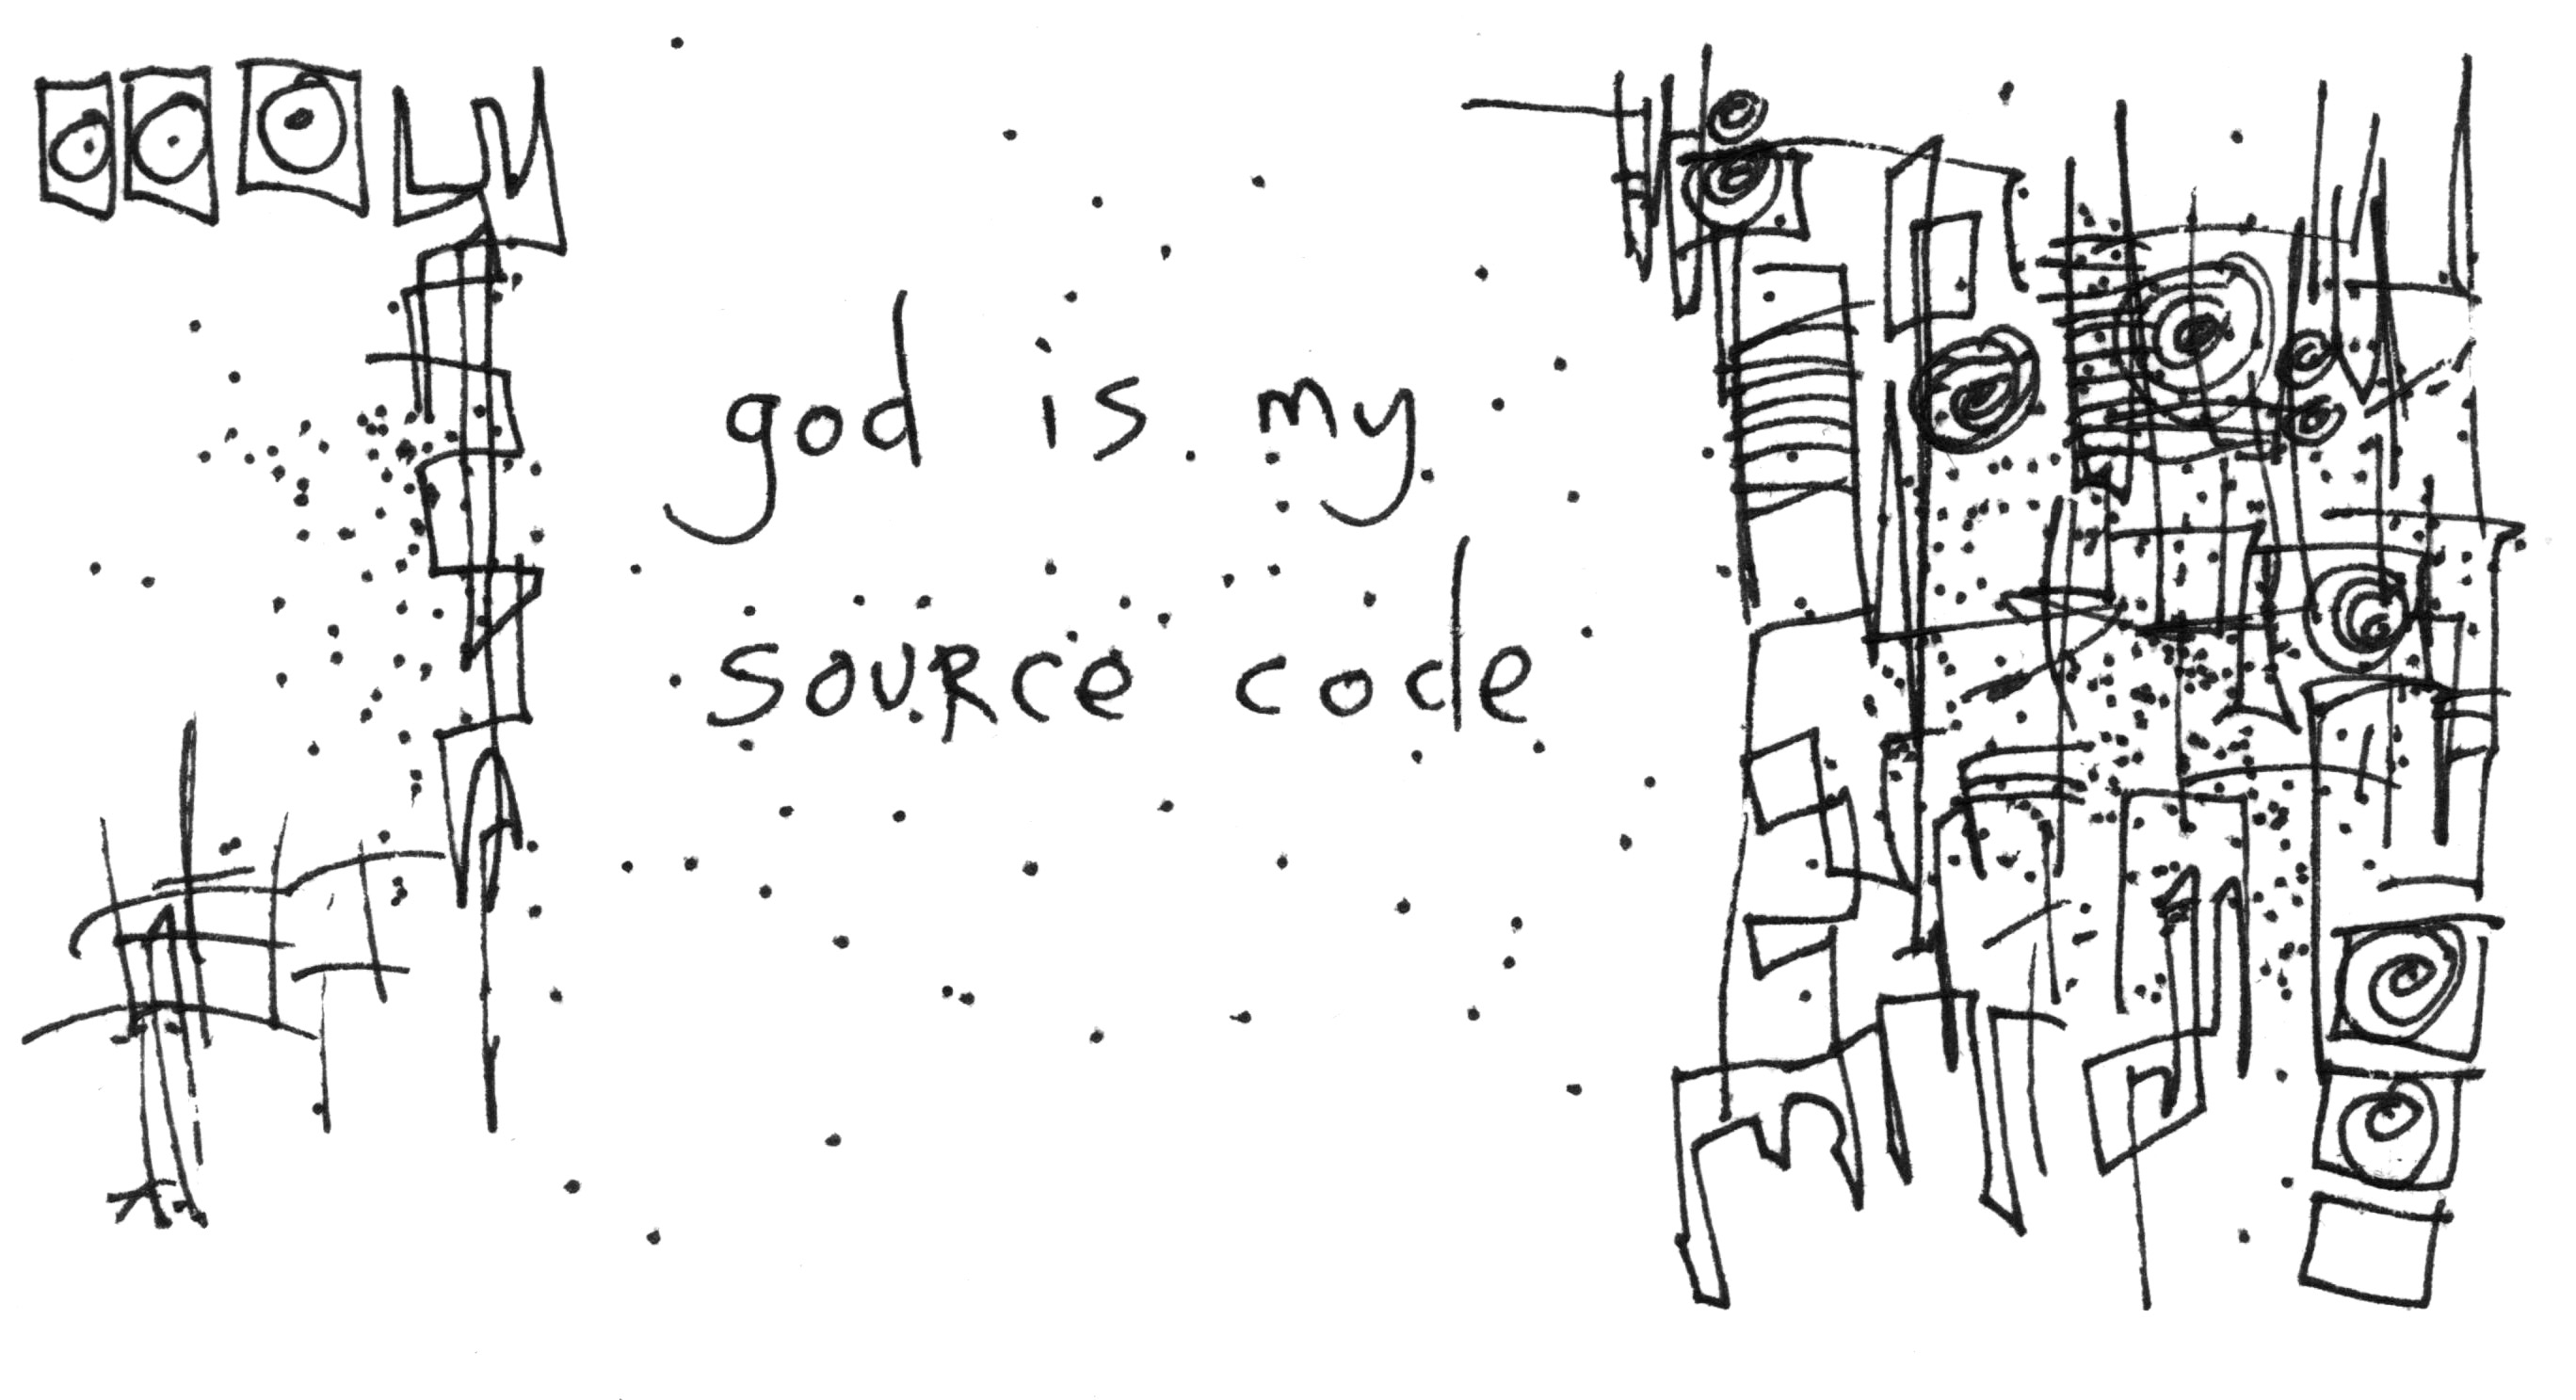 god is my
source code